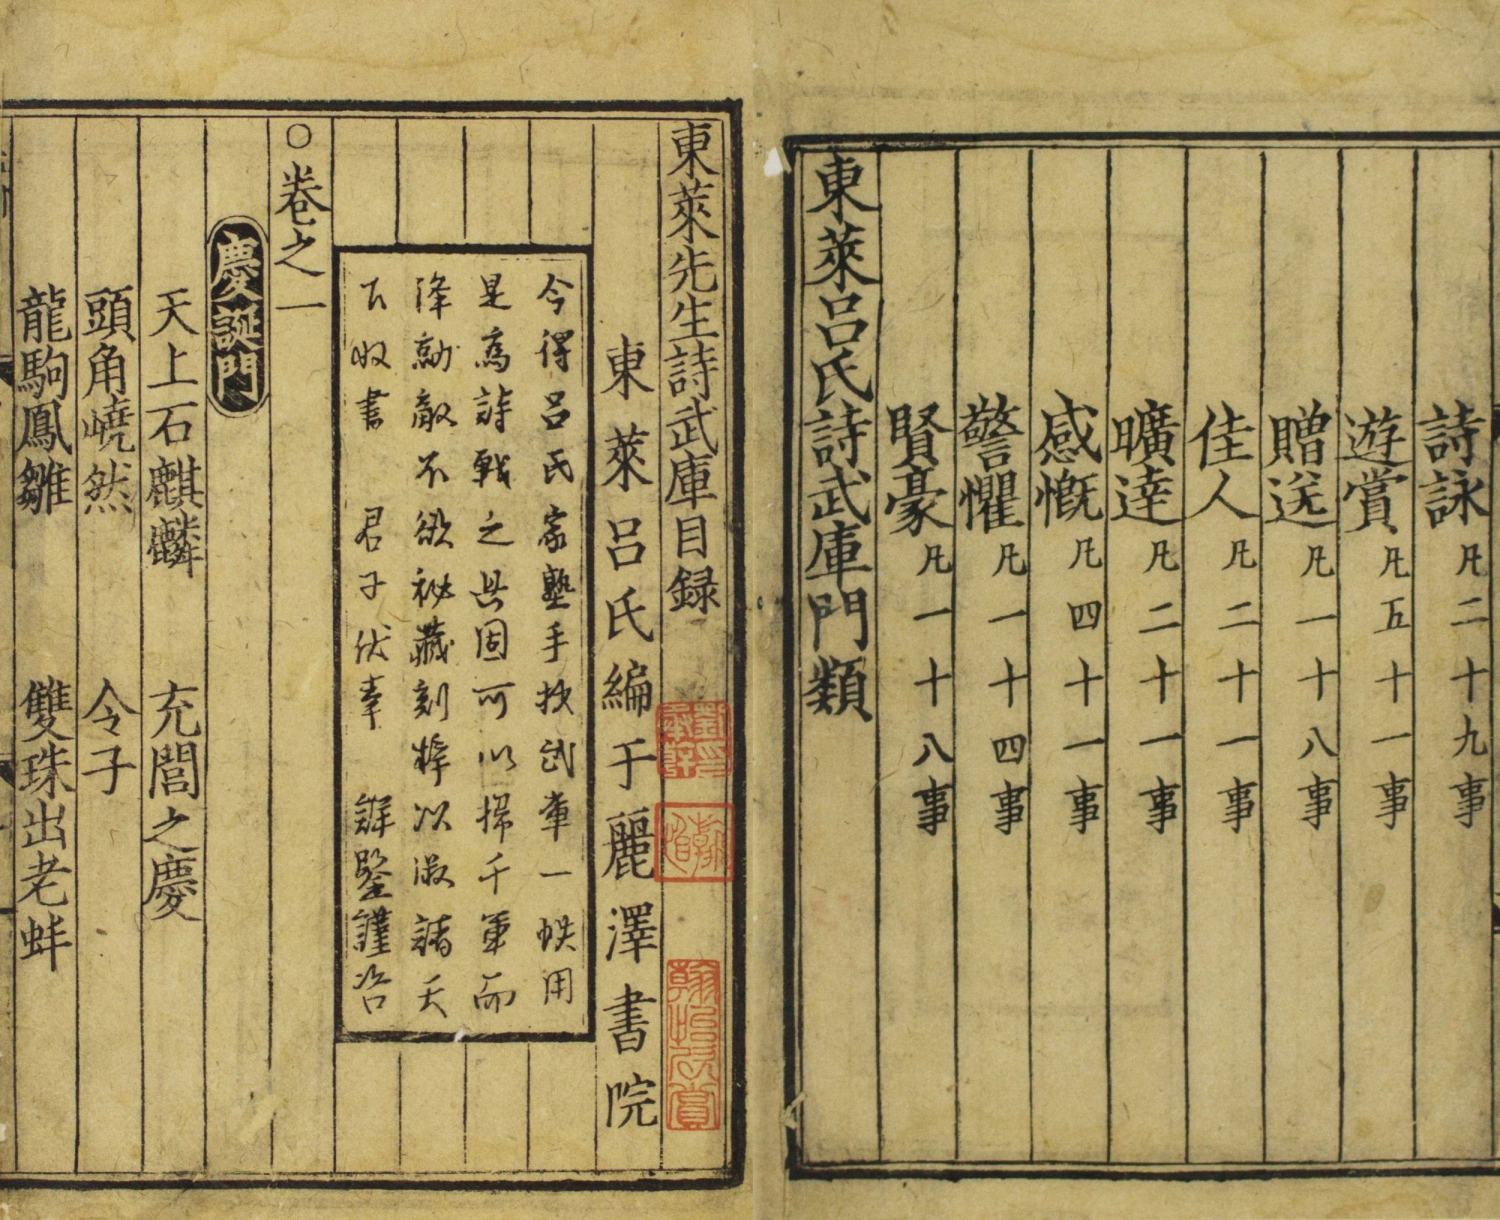 詩詠凡二十九事
遊賞凡五十一事
贈送凡一十八事
佳人凡二十一事
曠達凡二十一事
感慨凡四十一事
警懼凡一十四事
賢豪凡一十八事
東萊呂氏詩武庫門類
東萊先生詩武庫目録
東萊呂氏編于麗澤書院
今得呂氏家塾手抄武庫一帙用
是為詩戰之具固可以掃千軍而
降勍敵不欲祕藏刻梓以淑諸天
下收書君子伏幸詳鑒謹咨
○卷之一
慶誕門
天上石麒麟 充閭之慶
頭角嶢然 令子
龍駒鳳雛 雙珠出老蚌